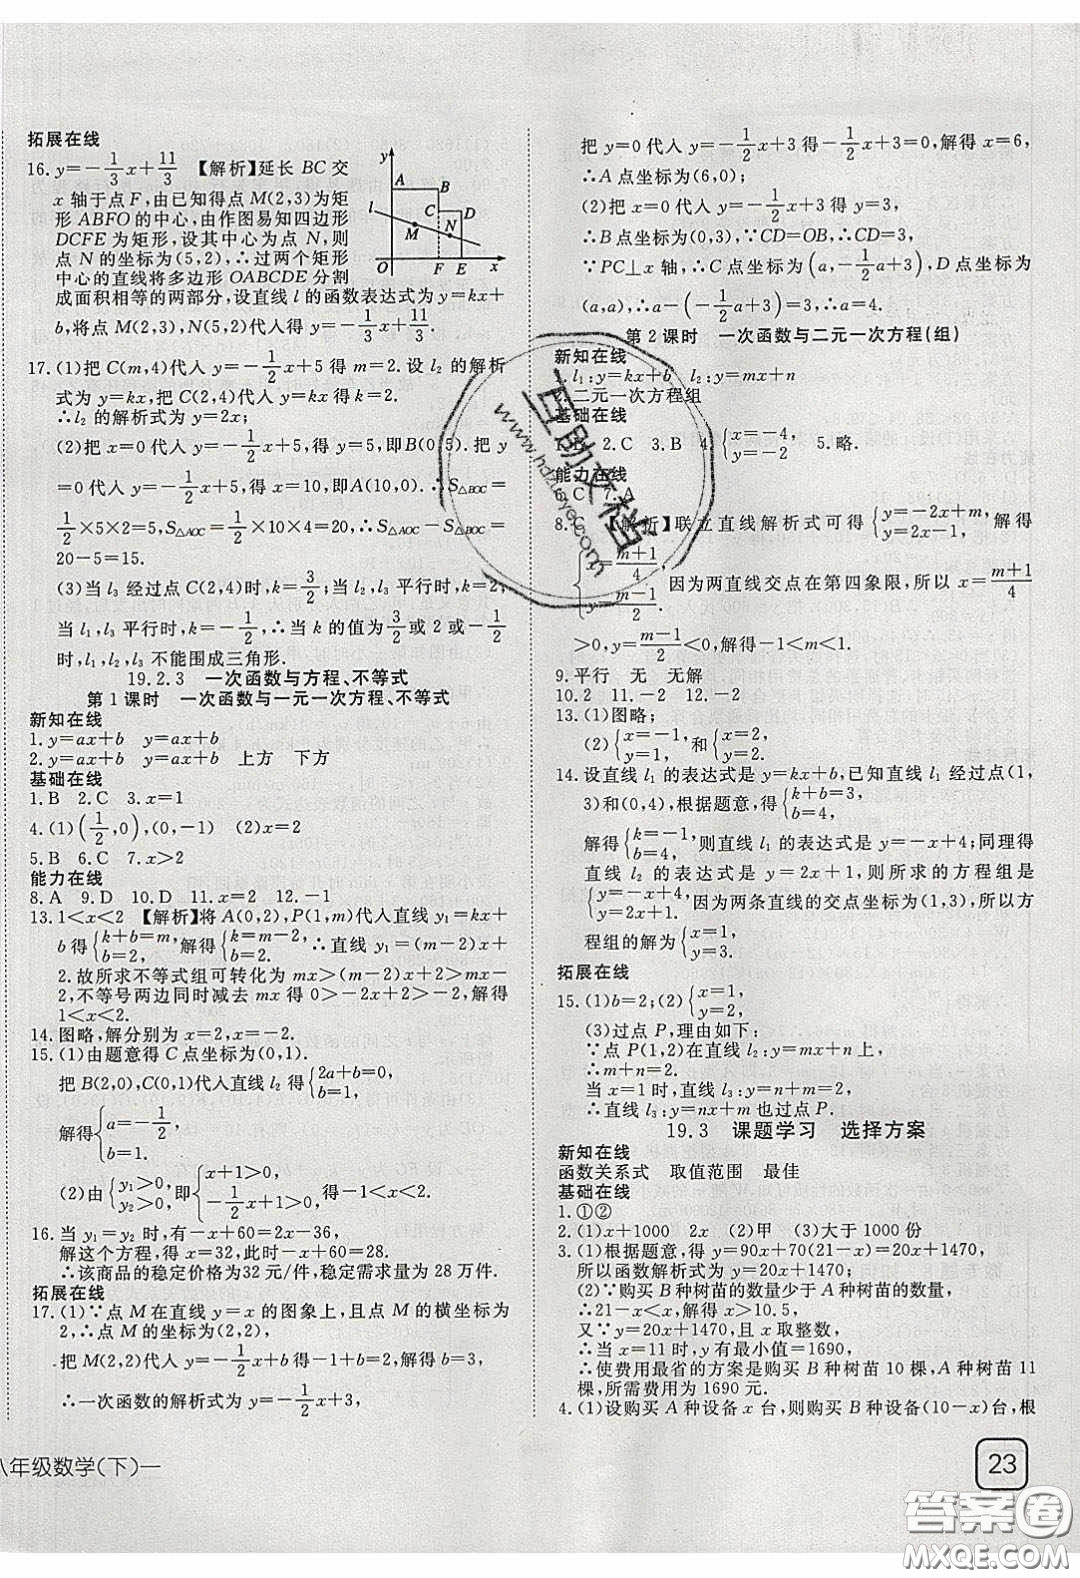 拓展在线
16. y=-1/3x+11/3 【解析】延长 BC 交
x 轴于点 F,由已知得点 M(2,3)为矩
形 ABFO 的中心,由作图易知四边形
DCFE 为矩形,设其中心为点 N,则
点 N 的坐标为(5,2),∴过两个矩形
中心的直线将多边形 OABCDE 分割
成面积相等的两部分,设直线 l 的函数表达式为 y=kx+
b,将点 M(2,3),N(5,2)代人得 y=-1/3x+11/3.
y
A
B
l
C
D
M
N
O
F
E
x
17. (1)把 C(m,4)代人 y=-1/2x+5 得 m=2. 设 l₂ 的解析
式为 y=kx,把 C(2,4)代人 y=kx 得 k=2.
∴l₂ 的解析式为 y=2x;
(2)把 x=0 代人 y=-1/2x+5,得 y=5,即B(0,5). 把 y
=0代人 y=-1/2x+5,得 x=10,即A(10,0). ∴S△BOC=
1/2×5×2=5,∴S△AOC=1/2×10×4=20,∴S△AOC-S△BOC=
20-5=15.
(3)当 l₃ 经过点 C(2,4)时,k=3/2;当 l₂,l₃ 平行时,k=2;
当 l₁,l₃ 平行时,k=-1/2,∴当 k 的值为 3/2 或 2 或-1/2
时,l₁,l₂,l₃ 不能围成三角形.
19.2.3 一次函数与方程、不等式
第 1 课时 一次函数与一元一次方程、不等式
新知在线
1. y=ax+b y=ax+b
2. y=ax+b y=ax+b 上方 下方
基础在线
1. B 2. C 3. x=1
4. (1)(1/2,0),(0,-1) (2)x=2
5. B 6. C 7. x>2
能力在线
8. A 9. D 10. D 11. x=2 12. -1
13. 1<x<2 【解析】将 A(0,2),P(1,m)代人直线 y₁=kx+
b得{k+b=m,b=2,解得{k=m-2,b=2.∴直线 y₁=(m-2)x+
2. 故所求不等式组可转化为 mx>(m-2)x+2>mx-
2,不等号两边同时减去 mx 得 0>-2x+2>-2,解得
1<x<2.
14. 图略,解分别为 x=2,x=-2.
15. (1)由题意得 C 点坐标为(0,1).
把 B(2,0),C(0,1)代人直线 l₂ 得{2a+b=0,b=1,
解得{a=-1/2,b=1.
(2)由{y₁>0,y₂>0,即{x+2>0,-1/2x+1>0,得-2<x<2.
16. 当 y₁=y₂ 时,有-x+60=2x-36,
解这个方程,得 x=32,此时-x+60=28.
∴该商品的稳定价格为32 元/件,稳定需求量为 28 万件.
拓展在线
17. (1)∵点 M 在直线 y=x 的图象上,且点 M 的横坐标为
2,∴点 M 的坐标为(2,2),
把 M(2,2)代人 y=-1/2x+b 得-1+b=2,解得 b=3,
∴一次函数的解析式为 y=-1/2x+3,
把 y=0 代人 y=-1/2x+3 得-1/2x+3=0,解得 x=6,
∴A 点坐标为(6,0);
(2)把 x=0 代人 y=-1/2x+3 得 y=3,
∴B 点坐标为(0,3),∵CD=OB,∴CD=3,
∵PC⊥x 轴,∴C 点坐标为(a,-1/2a+3),D 点坐标为
(a,a),∴a-(-1/2a+3)=3,∴a=4.
第 2 课时 一次函数与二元一次方程(组)
新知在线
1. l₁:y=kx+b l₂:y=mx+n
二元一次方程组
基础在线
2. C 3. B 4. {x=-4,y=-2 5. 略.
能力在线
6. C 7. A
8. C 【解析】联立直线解析式可得{y=-2x+m,y=2x-1,解得
{x=m+1/4,y=m-1/2.因为两直线交点在第四象限,所以 x=m+1/4
>0,y=m-1/2<0,解得-1<m<1.
9. 平行 无 无解
10. 2 11. -2 12. -2
13. (1)图略;
(2){x=2,y=1,和{x=-2,y=1.
14. 设直线 l₁ 的表达式是 y=kx+b,已知直线 l₁ 经过点(1,
3)和(0,4),根据题意,得{k+b=3,b=4,
解得{k=-1,b=4.则直线 l₁ 的表达式是 y=-x+4;同理得
直线 l₂ 的表达式是 y=2x+1,则所求的方程组是
{y=-x+4,y=2x+1,因为两条直线的交点坐标为(1,3),所以方
程组的解为{x=1,y=3.
拓展在线
15. (1)b=2;(2){x=1,y=2;
(3)过点 P,理由如下:
∵点 P(1,2)在直线 l₂:y=mx+n 上,
∴m+n=2.
当 x=1 时,直线 l₃:y=n+m=2,
∴直线 l₃:y=nx+m 也过点 P.
19.3 课题学习 选择方案
新知在线
函数关系式 取值范围 最佳
基础在线
1. ①②
2. (1)x+1000 2x (2)甲 (3)大于 1000 份
3. (1)根据题意,得 y=90x+70(21-x)=20x+1470,
所以函数解析式为 y=20x+1470;
(2)∵购买 B 种树苗的数量少于 A 种树苗的数量,
∴21-x<x,解得 x>10.5,
又∵y=20x+1470,且 x 取整数,
∴当 x=11 时,y 有最小值=1690,
∴使费用最省的方案是购买 B 种树苗 10 棵,A 种树苗 11
棵,所需费用为 1690 元.
4. (1)设购买 A 种设备 x 台,则购买 B 种设备(10-x)台,根
八年级数学(下)一
23
互助文档
www.hdzuoye.com
答案圈
MXQE.COM